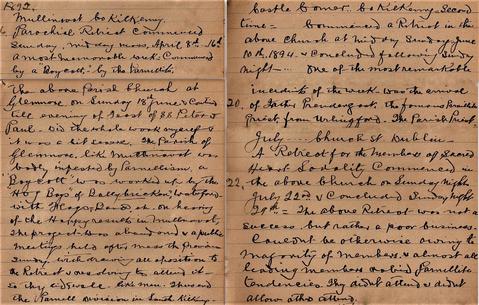 1892.
Mullinavat Co Kilkenny.
Parochial Retreat Commenced
Sunday, mid day mass, April 8th - 16th
a most memorable week. Commenced
by a "Boycott," by the Parnellites.
The above Parish Church at
Glenmore on Sunday 18 June & lasted
till evening of Feast of SS Peter &
Paul. Did the whole work myself &
it was a big lease. The Parish of
Glenmore, like Mullinavat was
badly infected by Parnellism, a
"Boycott" was worked up by the
Boys of Ballybricken Waterford
with Brass Band &c. on hearing
of the Happy results in Mullinavat,
The project was abandoned & a public
meeting held after mass the previous
Sunday withdrawing all opposition to
the Retreat & resolving to attend it -
so they did well like men. Thus ended
the Parnell division in South Kilkenny -
Castle Comer. Co Kilkenny - Second
time = Commenced a Retreat in the
above Church at Mid day Sunday June
10th, 1894 & Concluded following Sunday
night - One of the most remarkable
incidents of the week was the arrival
20. of Father Prendergast, the famous Parnellite
Priest, from Urlingford. The Parish Priest.
July - Church St Dublin -
A Retreat for the Members of Sacred
Heart Sodality Commenced in
22. the above Church on Sunday night
July 22nd & Concluded Sunday night
29th = The above Retreat was not a
success but rather a poor business.
Couldn't be otherwise owing to
majority of members & almost all
leading members rabid Parnellite
tendencies. They didn't attend & didn't
allow others attend.